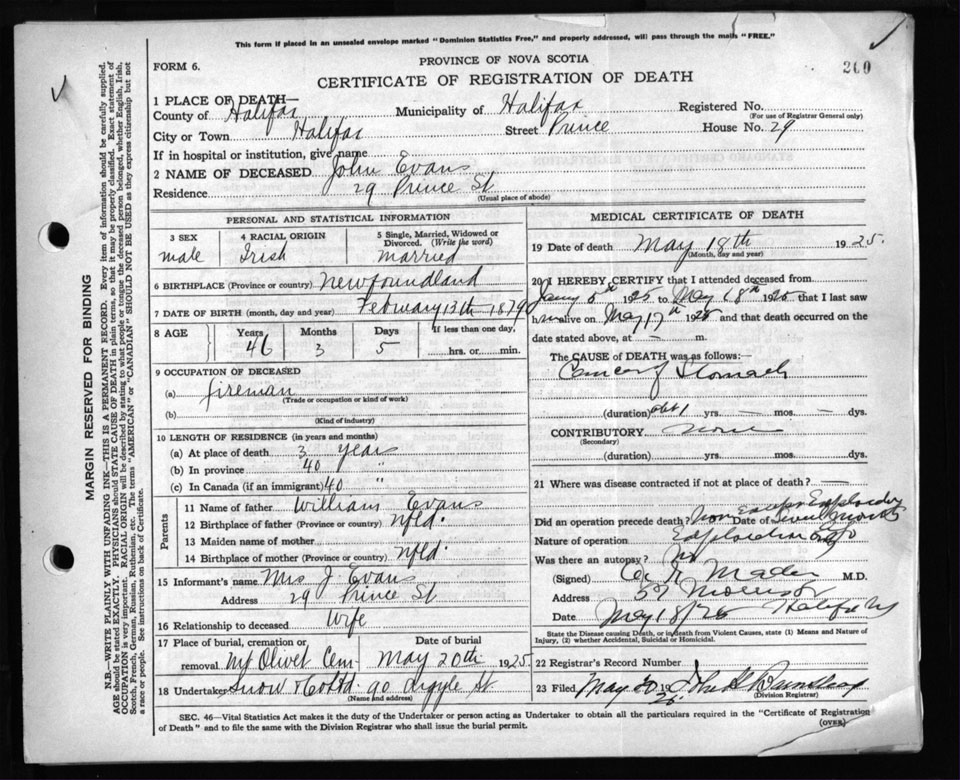 This form if placed in an unsealed envelope marked "Dominion Statistics Free," and properly addressed, will pass through the mails "FREE."
PROVINCE OF NOVA SCOTIA
FORM 6.
CERTIFICATE OF REGISTRATION OF DEATH
200
1 PLACE OF DEATH—
County of Halifax Municipality of Halifax Registered No.
(For use of Registrar General only)
City or Town Halifax Street Prince House No. 29
If in hospital or institution, give name
2 NAME OF DECEASED John Evans
Residence 29 Prince St
(Usual place of abode)
PERSONAL AND STATISTICAL INFORMATION
3 SEX male
4 RACIAL ORIGIN Irish
5 Single, Married, Widowed or Divorced. (Write the word) married
6 BIRTHPLACE (Province or country) Newfoundland
7 DATE OF BIRTH (month, day and year) February 13th 1879
8 AGE Years 46 Months 3 Days 5 If less than one day, hrs. or min.
9 OCCUPATION OF DECEASED
(a) fireman
(Trade or occupation or kind of work)
(b)
(Kind of industry)
10 LENGTH OF RESIDENCE (in years and months)
(a) At place of death 3 years
(b) In province 40 "
(c) In Canada (if an immigrant) 40 "
Parents
11 Name of father William Evans
12 Birthplace of father (Province or country) nfld.
13 Maiden name of mother
14 Birthplace of mother (Province or country) nfld.
15 Informant's name Mrs J. Evans
Address 29 Prince St
16 Relationship to deceased Wife
17 Place of burial, cremation or removal Mt Olivet Cem Date of burial May 20th 1925.
18 Undertaker Snow & Co Ltd 90 Argyle St.
(Name and address)
MEDICAL CERTIFICATE OF DEATH
19 Date of death May 18th 1925.
(Month, day and year)
20 I HEREBY CERTIFY that I attended deceased from
1925 to May 18th 1925 that I last saw
him alive on May 17th 1925 and that death occurred on the
date stated above, at — m.
The CAUSE OF DEATH was as follows:
Cancer of Stomach
(duration) 1 yrs. — mos. — dys.
CONTRIBUTORY none
(Secondary)
(duration) yrs. mos. dys.
21 Where was disease contracted if not at place of death? —
Did an operation precede death? Date of
Nature of operation
Was there an autopsy? No
(Signed) Mader M.D.
Address 57 Morris St
Date May 18/25 Halifax NS
State the Disease causing Death, or in death from Violent Causes, state (1) Means and Nature of
Injury, (2) whether Accidental, Suicidal or Homicidal.
22 Registrar's Record Number
23 Filed May 20 1925
(Division Registrar)
SEC. 46—Vital Statistics Act makes it the duty of the Undertaker or person acting as Undertaker to obtain all the particulars required in the "Certificate of Registration
of Death" and to file the same with the Division Registrar who shall issue the burial permit.
(OVER)
MARGIN RESERVED FOR BINDING
N.B.—WRITE PLAINLY WITH UNFADING INK—THIS IS A PERMANENT RECORD. Every item of information should be carefully supplied.
AGE should be stated EXACTLY. PHYSICIANS should STATE CAUSE OF DEATH in plain terms, so that it may be properly classified. Exact statement of
OCCUPATION is very important. RACIAL ORIGIN will be described by stating to what people or tongue the deceased person belonged, whether English, Irish,
Scotch, French, German, Russian, Ruthenian, etc. The terms "AMERICAN" or "CANADIAN" SHOULD NOT BE USED as they express citizenship but not
a race or people. See instructions on back of Certificate.